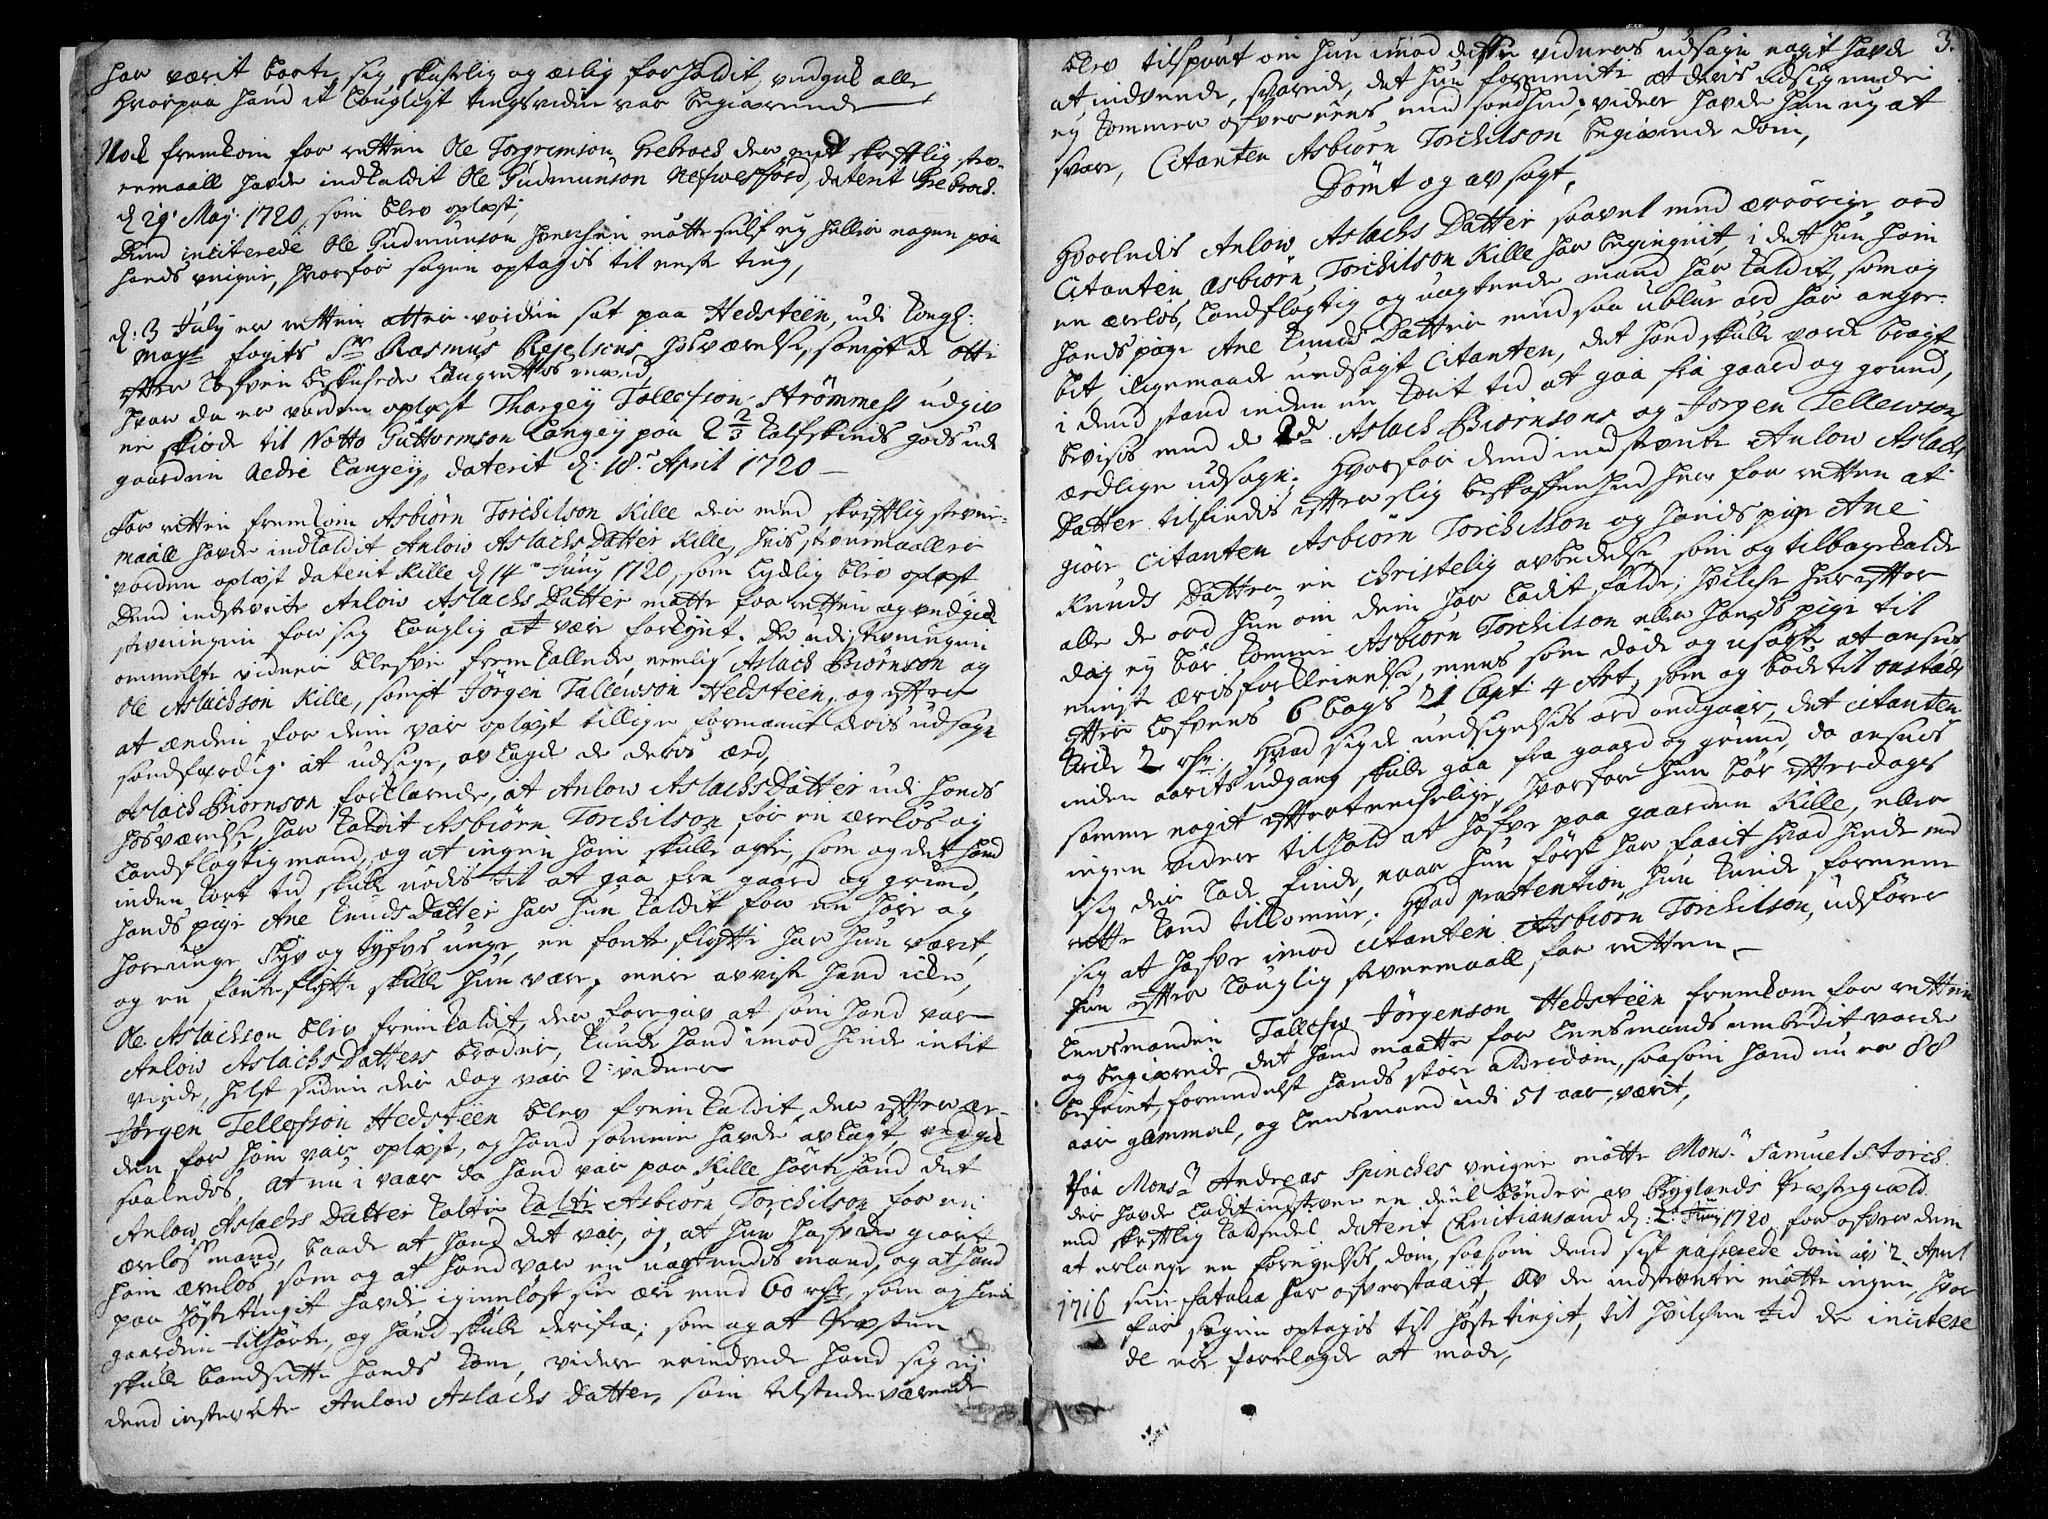 har værit borte, sig skichelig og ærlig forholdit, vedgik alle
hvorpaa hand it lougligt tingsvidne var begierende
Nock fremkom for retten Ole Torgremson Hrebroch der med skrifftlig stev-
nemaall hafde indkaldit Ole Gudmunson daterit Hrebroch
d 29 Maj 1720, som blev oplæst,
Dend inciterede Ole Gudmunson hverchen mötte sielf ey heller nogen paa
hands veigne, hvorfor sagen optagis til nest ting,
d: 3 July er retten atter vorden sat paa Hedsteen, udi Kongl:
Mays fogits Sr Rasmus hosværelse, sampt de otte
effter Lofven beskichede Laugrettes mænd,
hvor da er vorden oplæst Thorgey Tollefson Strömmess udgivne
skiöde til Notto Guttormson Langey paa 2 2/3 Kalfskinds gods udi
gaarden Nedre Langeij, daterit d: 18 April 1720 —
For retten fremkom Asbiörn Torchilson Kille der med skrifftlig stevne-
maall hafde indkaldit Anlow Aslachs Datter Kille, hvis stevnemaall er
vorden oplæst daterit Kille d 14 Juny 1720, som lydlig blev oplæst
Dend indstevnte Anlow Aslachs Datter mötte for retten og vedgick
stevningen for sig louglig at være forkynt. De udi stevningen
ommelte vidner blefve fremkallede, nemlig Aslach Biörnson og
Ole Aslachson Kille, sampt Jörgen Tallewson Hedsteen, og effter
at æden for dem var oplæst tillige formanet deris udsagn
sandfærdig at udsige, avlagde de deris æd,
Aslach Biörnson forklarede, at Anlow Aslachs Datter udi hands
hosværelse, har kaldit Asbiörn Torchilson for en ærelös og
landflögtig mand, og at ingen ham skulle agte, som og det hand
inden kort tid skulle nödis til at gaa fra gaard og grund,
hands pige Ane Knuds Datter har hun kaldit for en hore og
horeunge tyv og tyfvs unge, en fante flytte har hun værit,
og en fanteflytte skulle hun være, mere avviste hand icke,
Ole Aslachson blev fremkaldit, der foregav at som hand var
Anlow Aslachs Datters broder, kunde hand imod hinde intit
vinde, helst siden der dog var 2 vidner
Jörgen Tellefson Hedsteen blev fremkaldit, der effter æ-
den for ham var oplæst, og hand samme hafde avlagt, vedgik
saaledes, at nu i vaar da hand var paa Kille hörte hand det
Anlow Aslachs Datter kalte kalte Asbiörn Torchilson for en
ærelös mand, baade at hand det var, og at hun hafde giort
ham ærelös, som og at hand var en uagtendis mand, og at hand
paa hösttingit hafde igienlöst sin ære med 60 rdr, som og hinde
gaarden tilhörte, og hand skulle derifra, som og at Presten
skulle bandsette hands kone, videre erindrede hand sig ey
dend instevnte Anlow Aslachs Datter, som tilstede værende
3.
blev tilspurt om hun imod disse vidners udsagn nogit hafde
at indvende, svarede, det hun formente at deris udsigende
ey kommer ofver eens med sandhed, videre hafde hun ey at
svare, Citanten Asbiörn Torchilson begierede dom,
Dömt og avsagt,
Hvorledis Anlow Aslachs Datter saavel med ærrörige ord
Citanten Asbiörn Torchilson Kille har begiegnit, i det hun ham
en ærelös, landflögtig og uagtende mand har kaldit, som og
hands pige Ane Knuds Datter med saa ublue ord har angre-
bet, iligemaade undsagt Citanten, det hand skulle vorde bragt
i dend stand inden en kort tid at gaa fra gaard og grund,
bevises med de 2de Aslach Biörnsons og Jörgen Tellewsons
ædlige udsagn; hvorfor dend indstevnte Anlow Aslachs
Datter tilfindes effter slig beskaffenhed her for retten at
giöre Citanten Asbiörn Torchilson og hands pige Ane
Knuds Datter en christelig avbedelse, som og tilbagekalde
alle de ord hun om dem har ladit falde, hvilche her effter
dag ey bör komme Asbiörn Torchilson eller hands pige til
minste ærisforkleinelse, mens som döde og usagte at ansees
effter Lofvens 6 bogs 21 Capt: 4 Art, som og böde til onstædts
kirke 2 rdr. Hvad sig de undsigelsis ord angaar, det Citanten
inden aarets udgang skulle gaa fra gaard og grund, da ansees
samme nogit efftertencheligt, hvorfor hun bör effterdags
ingen videre tilhold at hafve paa gaarden Kille, eller
sig der lade finde, naar hun först har faait hvad hinde med
rette kand tilkomme. Hvad prætention hun kunde formene
sig at hafve imod Citanten Asbiörn Torchilson, udförer
hun effter louglig stevnemaall for retten —
Lensmanden Tallefv Jörgenson Hedsteen fremkom for retten
og begierede det hand maatte for Lensmands embedit vorde
befriet, formedelst hands store alderdom, saasom hand nu er 88
aar gammel, og lensmand udi 51 aar værit,
Paa Monsr Andreas Spinches veigne mötte Monsr Samuel Storch
der hafde ladit indstevne en deel bönder av Byglands Prestegield
med skrifftlig kaldsedel daterit Christiansand d: 2 Juny 1720 for ofver dem
at erlange en fornyelsis dom, saasom dend sist passerede dom av 2 April
1716 sine fatalia har ofverstaait, Av de indstevnte mötte ingen, hvor
for sagen optagis til hösttingit, til hvilchen tid de incitere
de ere forelagde at möde,